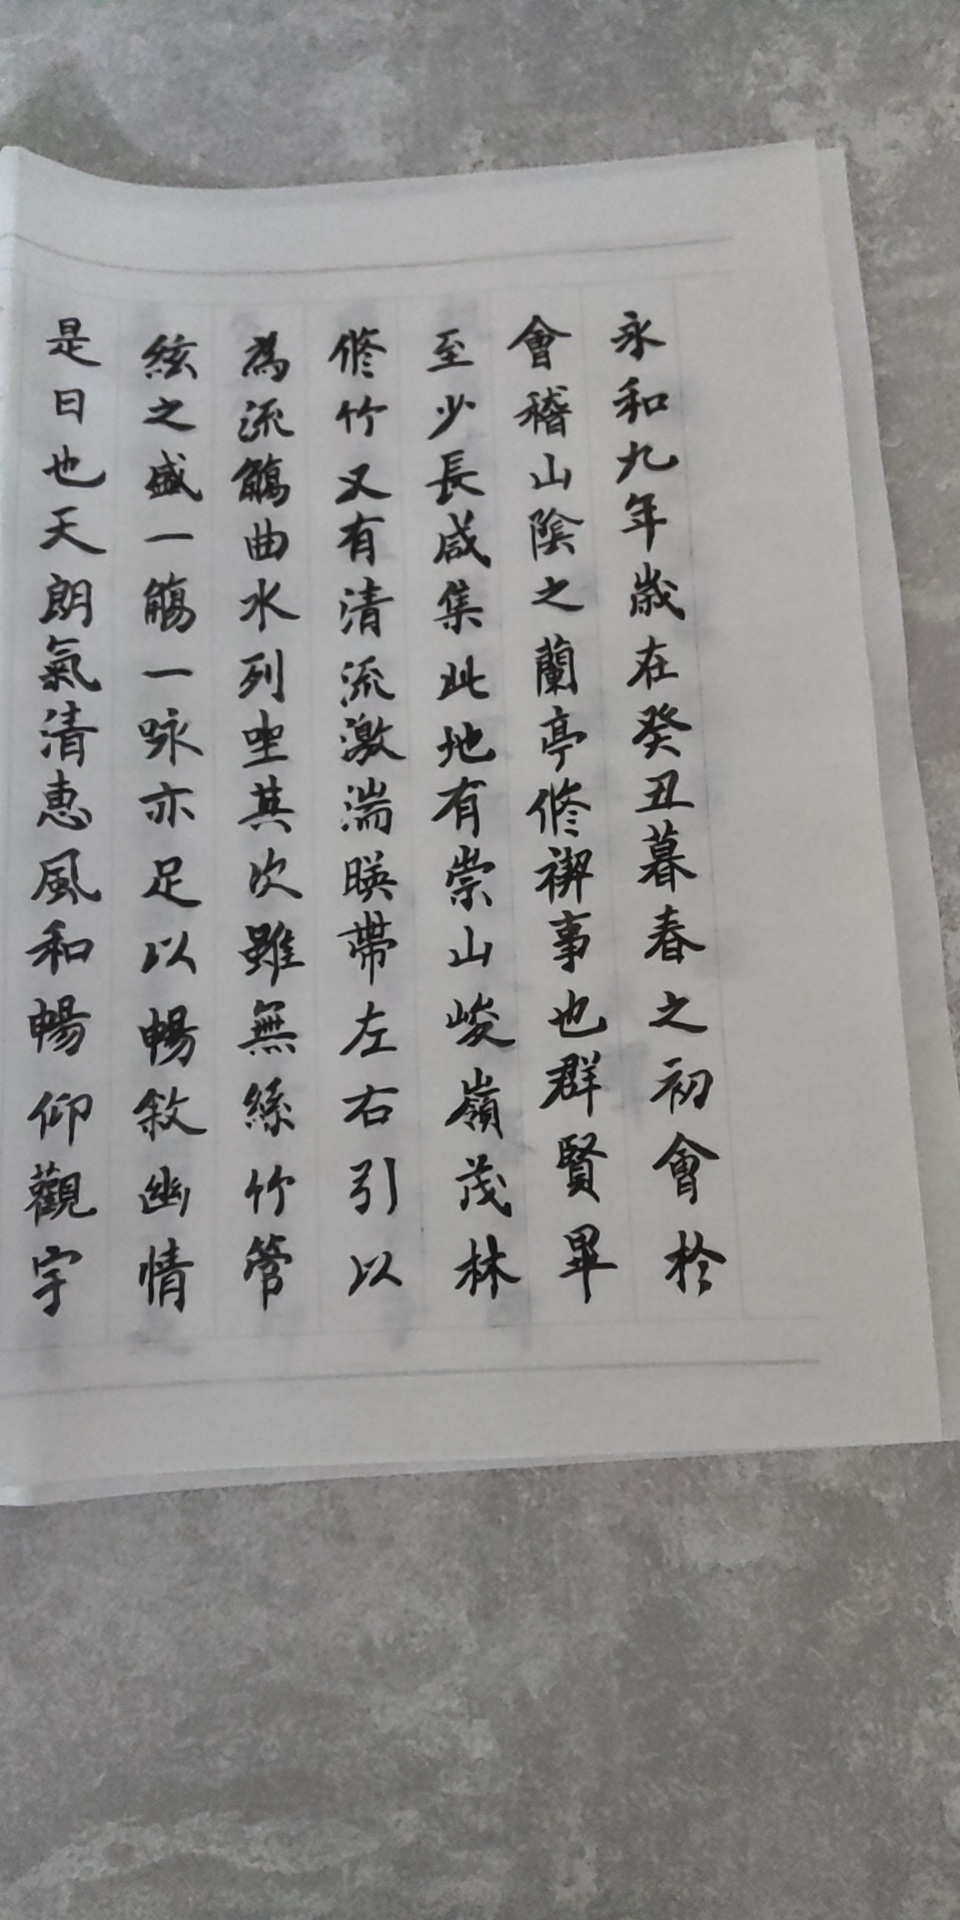 永和九年歲在癸丑暮春之初會於
會稽山陰之蘭亭修禊事也群賢畢
至少長咸集此地有崇山峻嶺茂林
修竹又有清流激湍暎帶左右引以
為流觴曲水列坐其次雖無絲竹管
絃之盛一觴一咏亦足以暢敘幽情
是日也天朗氣清惠風和暢仰觀宇